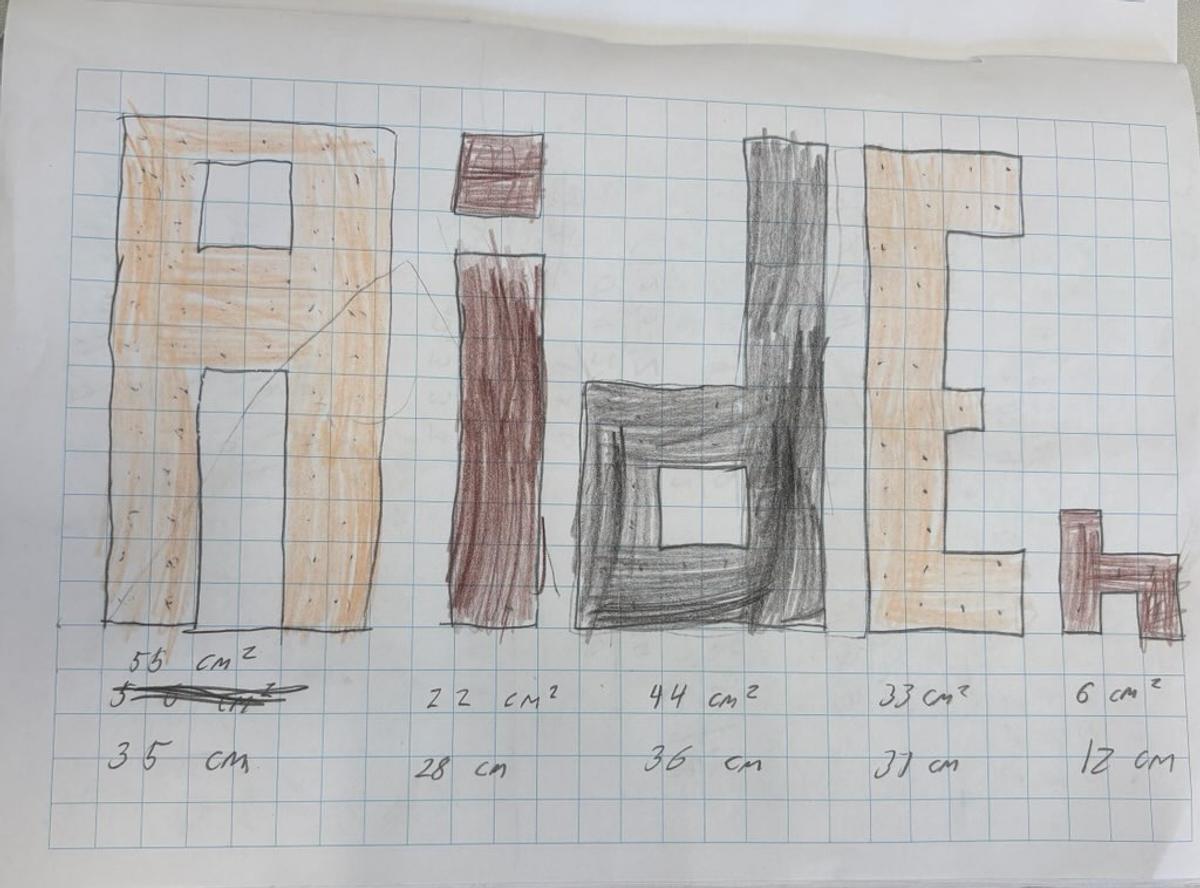 AidEn
55 cm²
22 cm² 44 cm² 33 cm² 6 cm²
35 cm 28 cm 36 cm 37 cm 12 cm